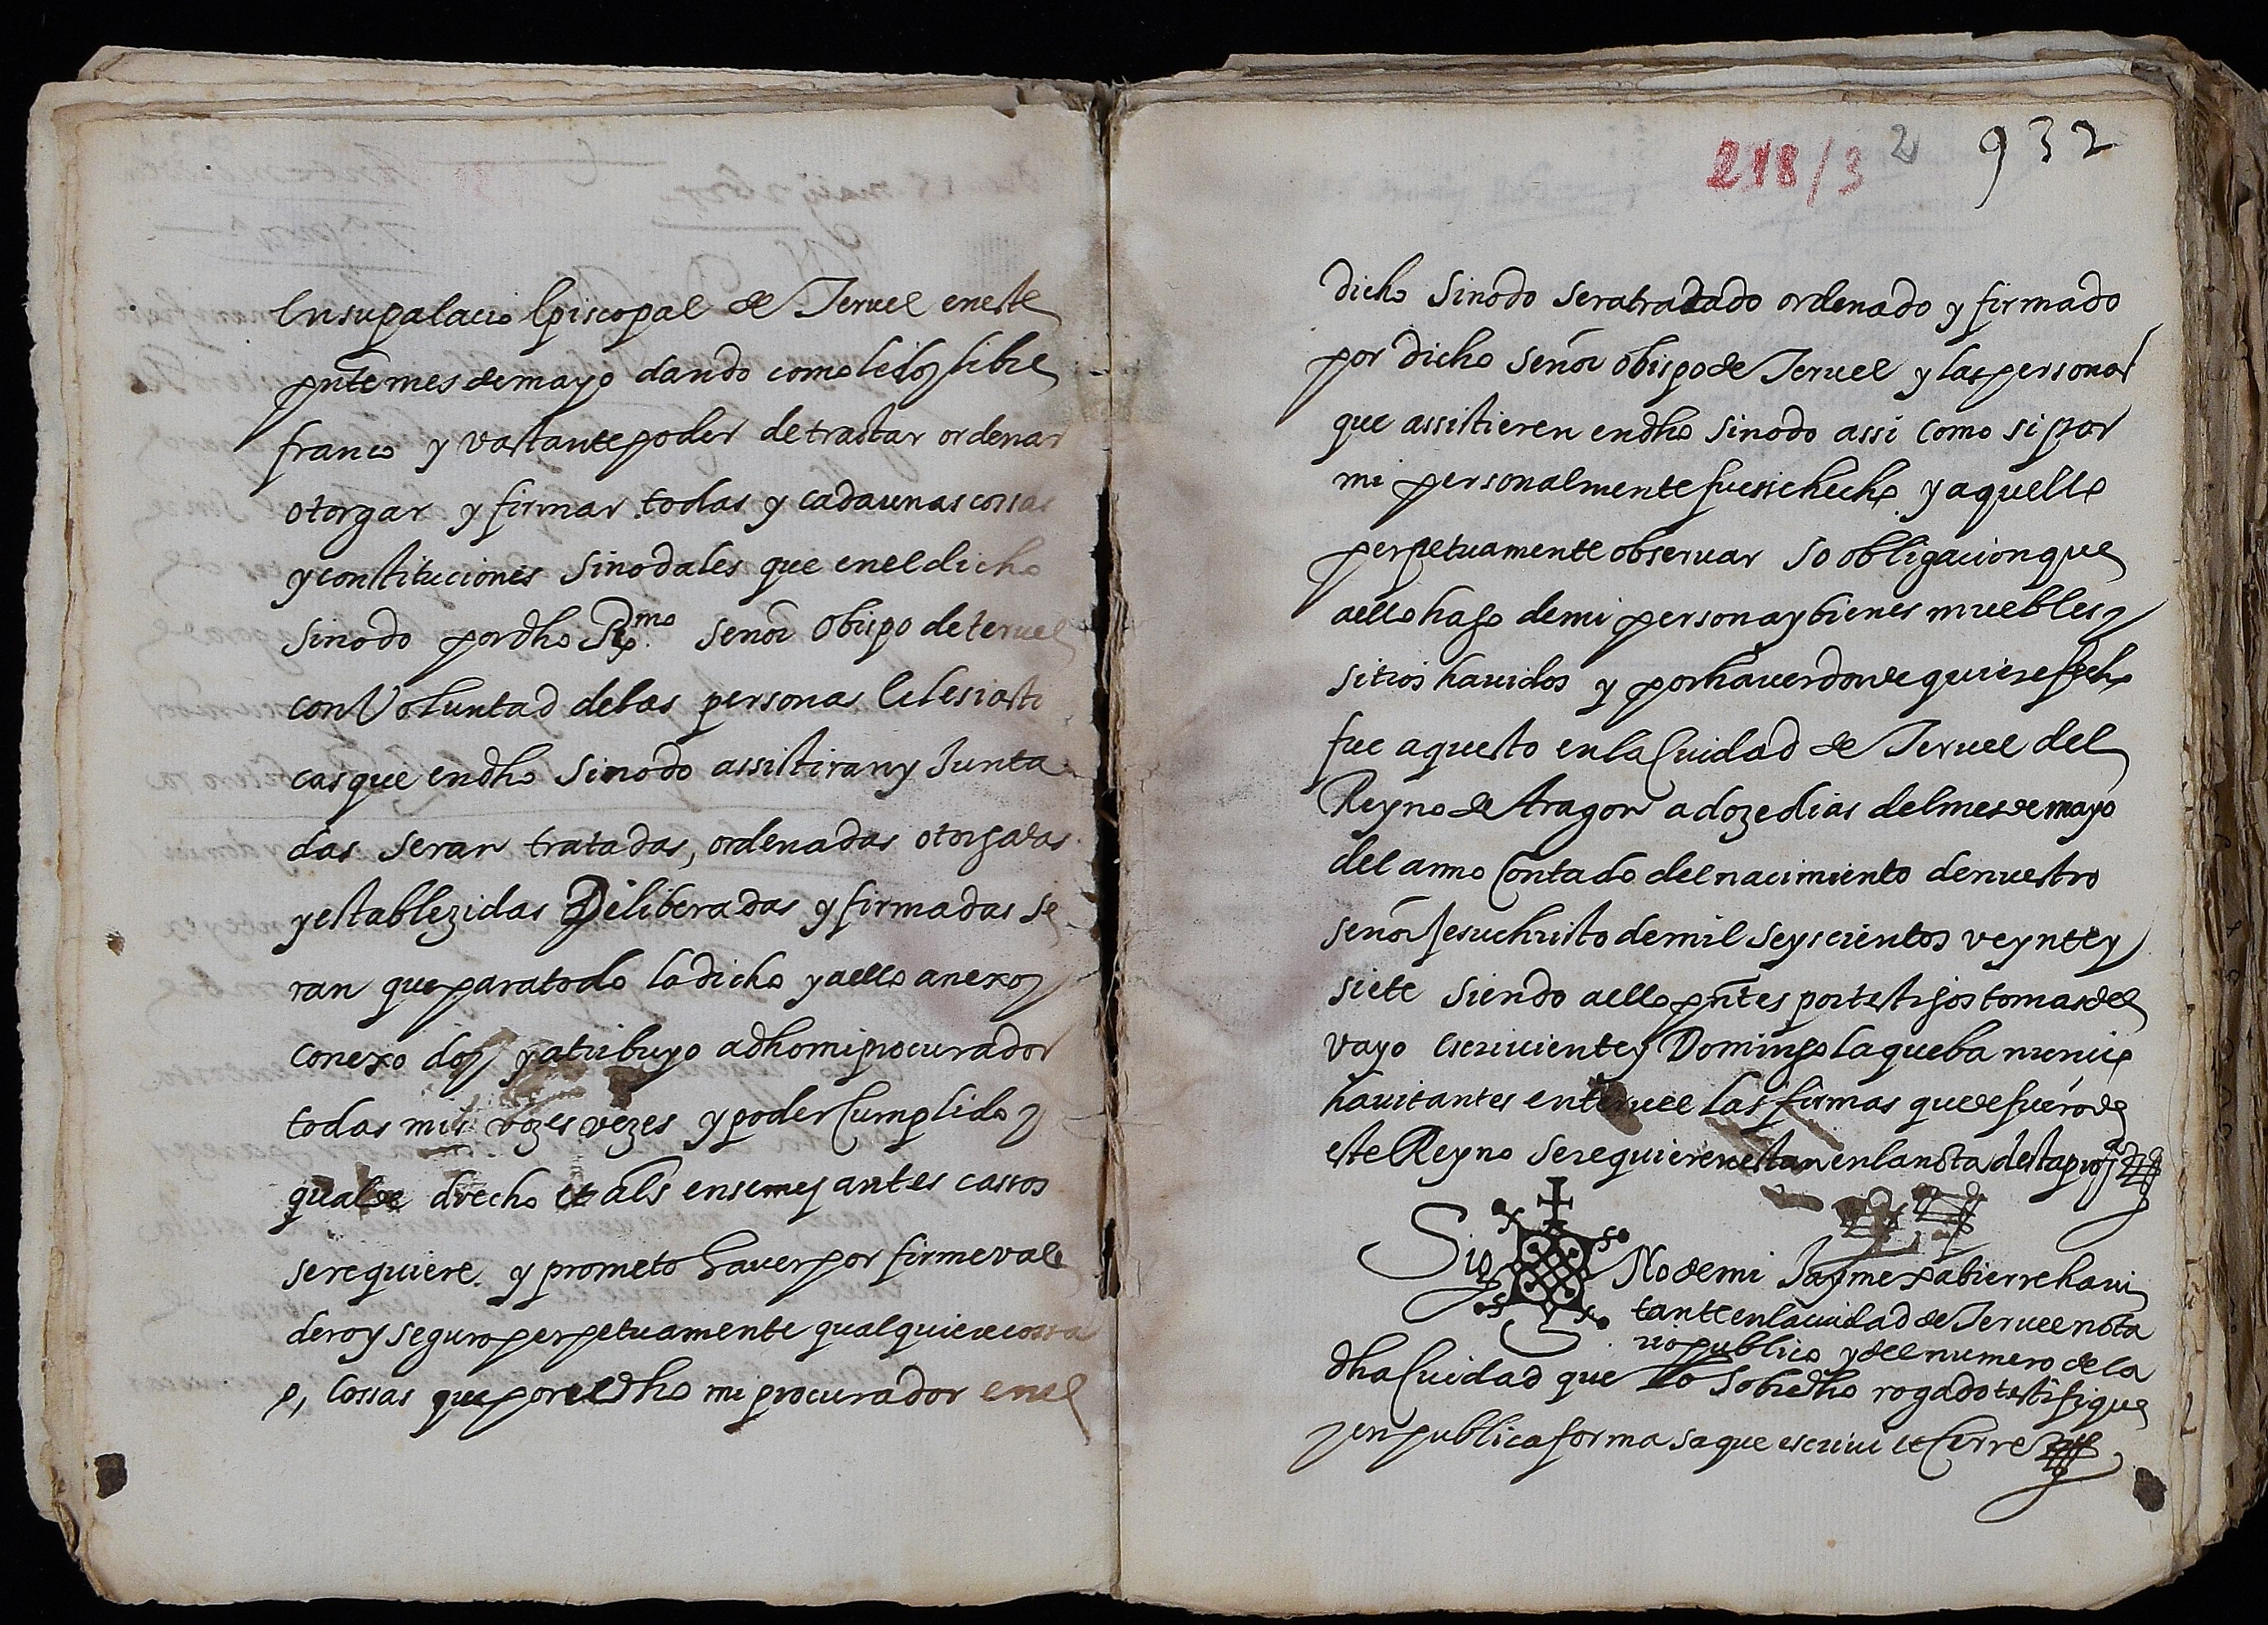 En su palacio Episcopal de Teruel en este
pñte mes de mayo dando como le doy libre
franco y vastante poder de tractar ordenar
otorgar y firmar todas y cada unas cossas
y constituciones Sinodales que en el dicho
Sinodo por dho Rmo. Señor Obispo de teruel
con Voluntad de las personas Eclesiasti
cas que en dho Sinodo assistiran y Junta
das seran tratadas, ordenadas otorgadas
y establezidas Deliberadas y firmadas se
ran que para todo lo dicho y a ello anexo y
conexo doy y atribuyo a dho mi procurador
todas mis vozes vezes y poder Cumplido y
qual de drecho et als en semejantes cassos
se requiere. y prometo haver por firme vale
dero y seguro perpetuamente qualquiere cossa
o, Cossas que por el dho mi procurador en el
218/3 2 932
dicho Sinodo sera tratado ordenado y firmado
por dicho Señor Obispo de Teruel y las personas
que assistieren en dho Sinodo assi como si por
mi personalmente fuesse hecho y aquello
perpetuamente observar so obligacion que
a ello hago de mi persona y bienes muebles y
sitios havidos y por haver donde quiere fecho
fue aquesto en la Ciudad de Teruel del
Reyno de Aragon a doze dias del mes de mayo
del anno Contado del nacimiento de nuestro
señor Jesuchristo de mil seyscientos veynte y
siete siendo a ello pñtes por testigos tomas del
vayo escriviente y Domingo la queba nuncio
havitantes en teruel las firmas que de fuero de
este Reyno se requieren estan en la nota desta
Sig No de mi Jayme xabierre havi
tante en la ciudad de Teruel nota
rio publico y del numero de la
dha Ciudad que lo sobredho rogado testifique
y en publica forma saque escrivi et Cerre